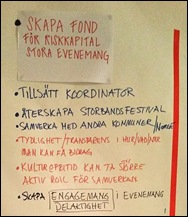 SKAPA FOND
FÖR RISKKAPITAL
STORA EVENEMANG
• TILLSÄTT KOORDINATOR
• ÅTERSKAPA STORBANDSFESTIVAL
• SAMVERKA MED ANDRA KOMMUNER/NORGE
• TYDLIGHET/TRANSPARENS I HUR/VAD/NÄR
MAN KAN FÅ BIDRAG
• KULTUR OFRITID KAN TA STÖRRE
AKTIV ROLL FÖR SAMVERKAN
• SKAPA ENGAGEMANG I EVENEMANG
DELAKTIGHET